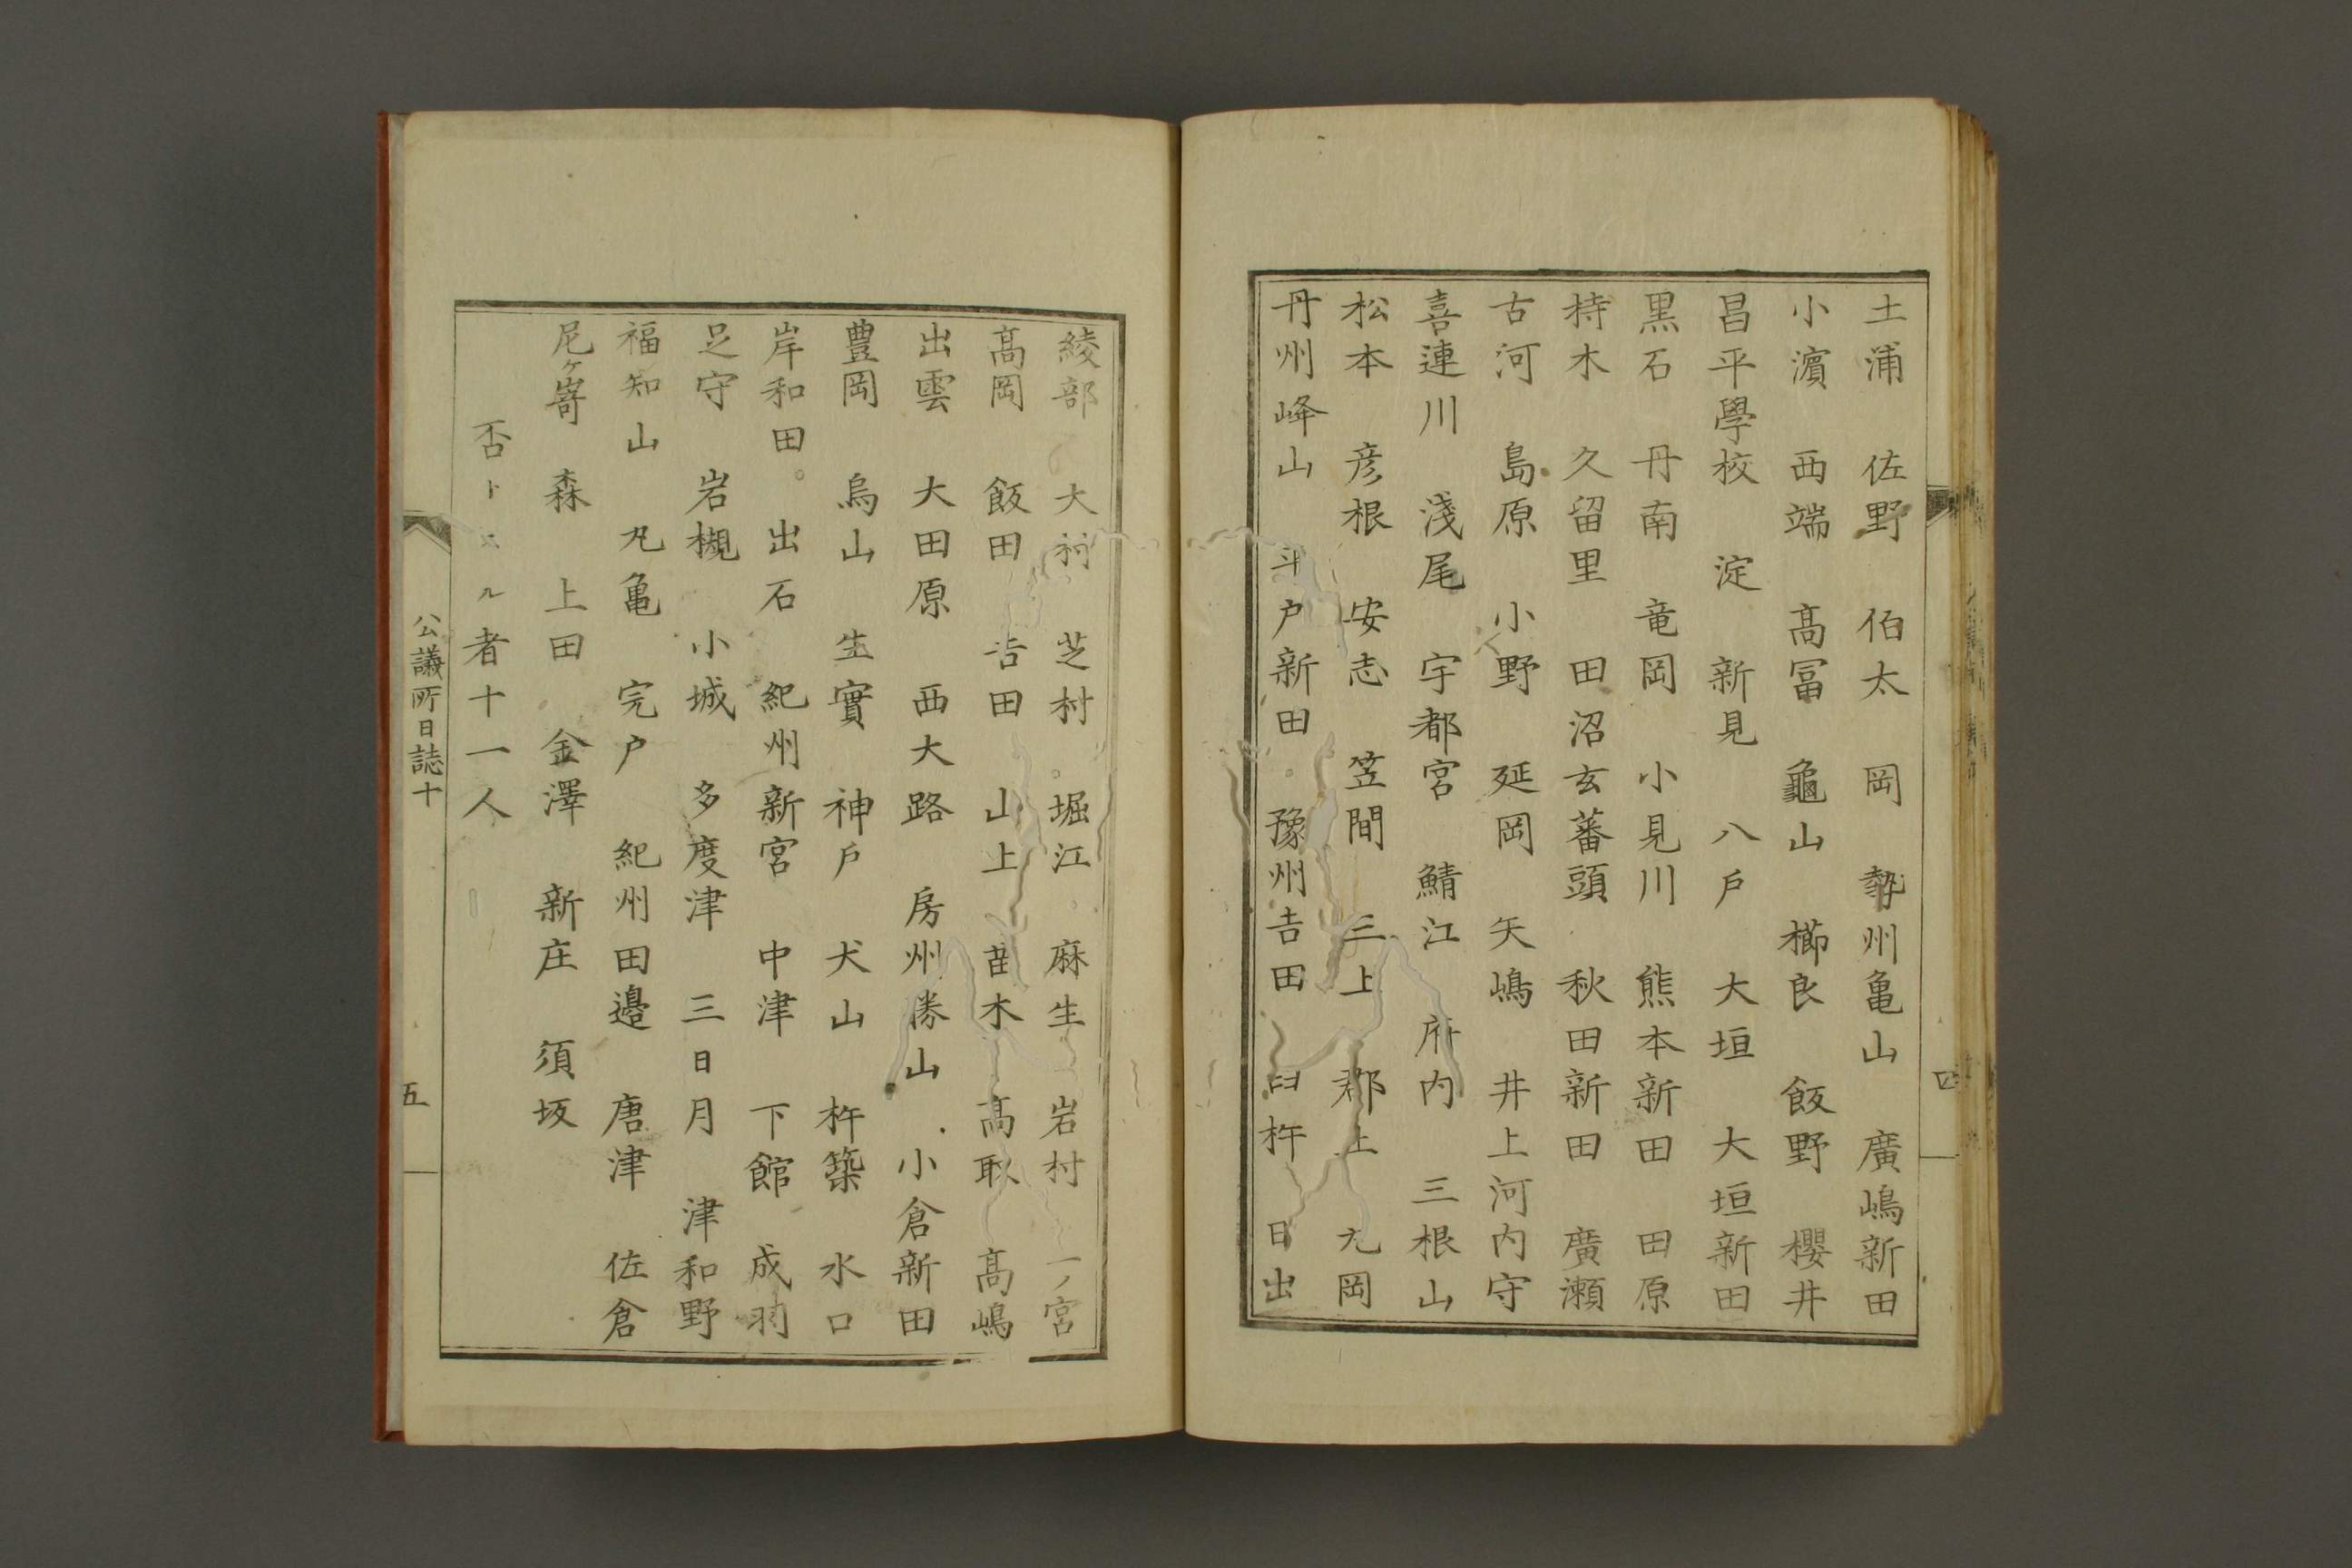 土浦　佐野　伯太　岡　勢州亀山　廣嶋新田
小濵　西端　髙冨　龜山　櫛良　飯野　櫻井
昌平學校　淀　新見　八戸　大垣　大垣新田
黒石　丹南　竜岡　小見川　熊本新田　田原
持木　久留里　田沼玄蕃頭　秋田新田　廣瀬
古河　島原　小野　延岡　矢嶋　井上河内守
喜連川　淺尾　宇都宮　鯖江　府内　三根山
松本　彦根　安志　笠間　三上　郡上　九岡
丹州峰山　平戸新田　豫州吉田　臼杵　日出
四
綾部　大村　芝村　堀江　麻生　岩村　一ノ宮
髙岡　飯田　吉田　山上　苗木　髙取　髙嶋
出雲　大田原　西大路　房州勝山　小倉新田
豊岡　烏山　生實　神戸　犬山　杵築　水口
岸和田　出石　紀州新宮　中津　下館　成羽
足守　岩槻　小城　多度津　三日月　津和野
福知山　丸亀　完戸　紀州田邉　唐津　佐倉
尼ヶ嵜　森　上田　金澤　新庄　須坂
否トスル者十一人
公議所日誌十
五